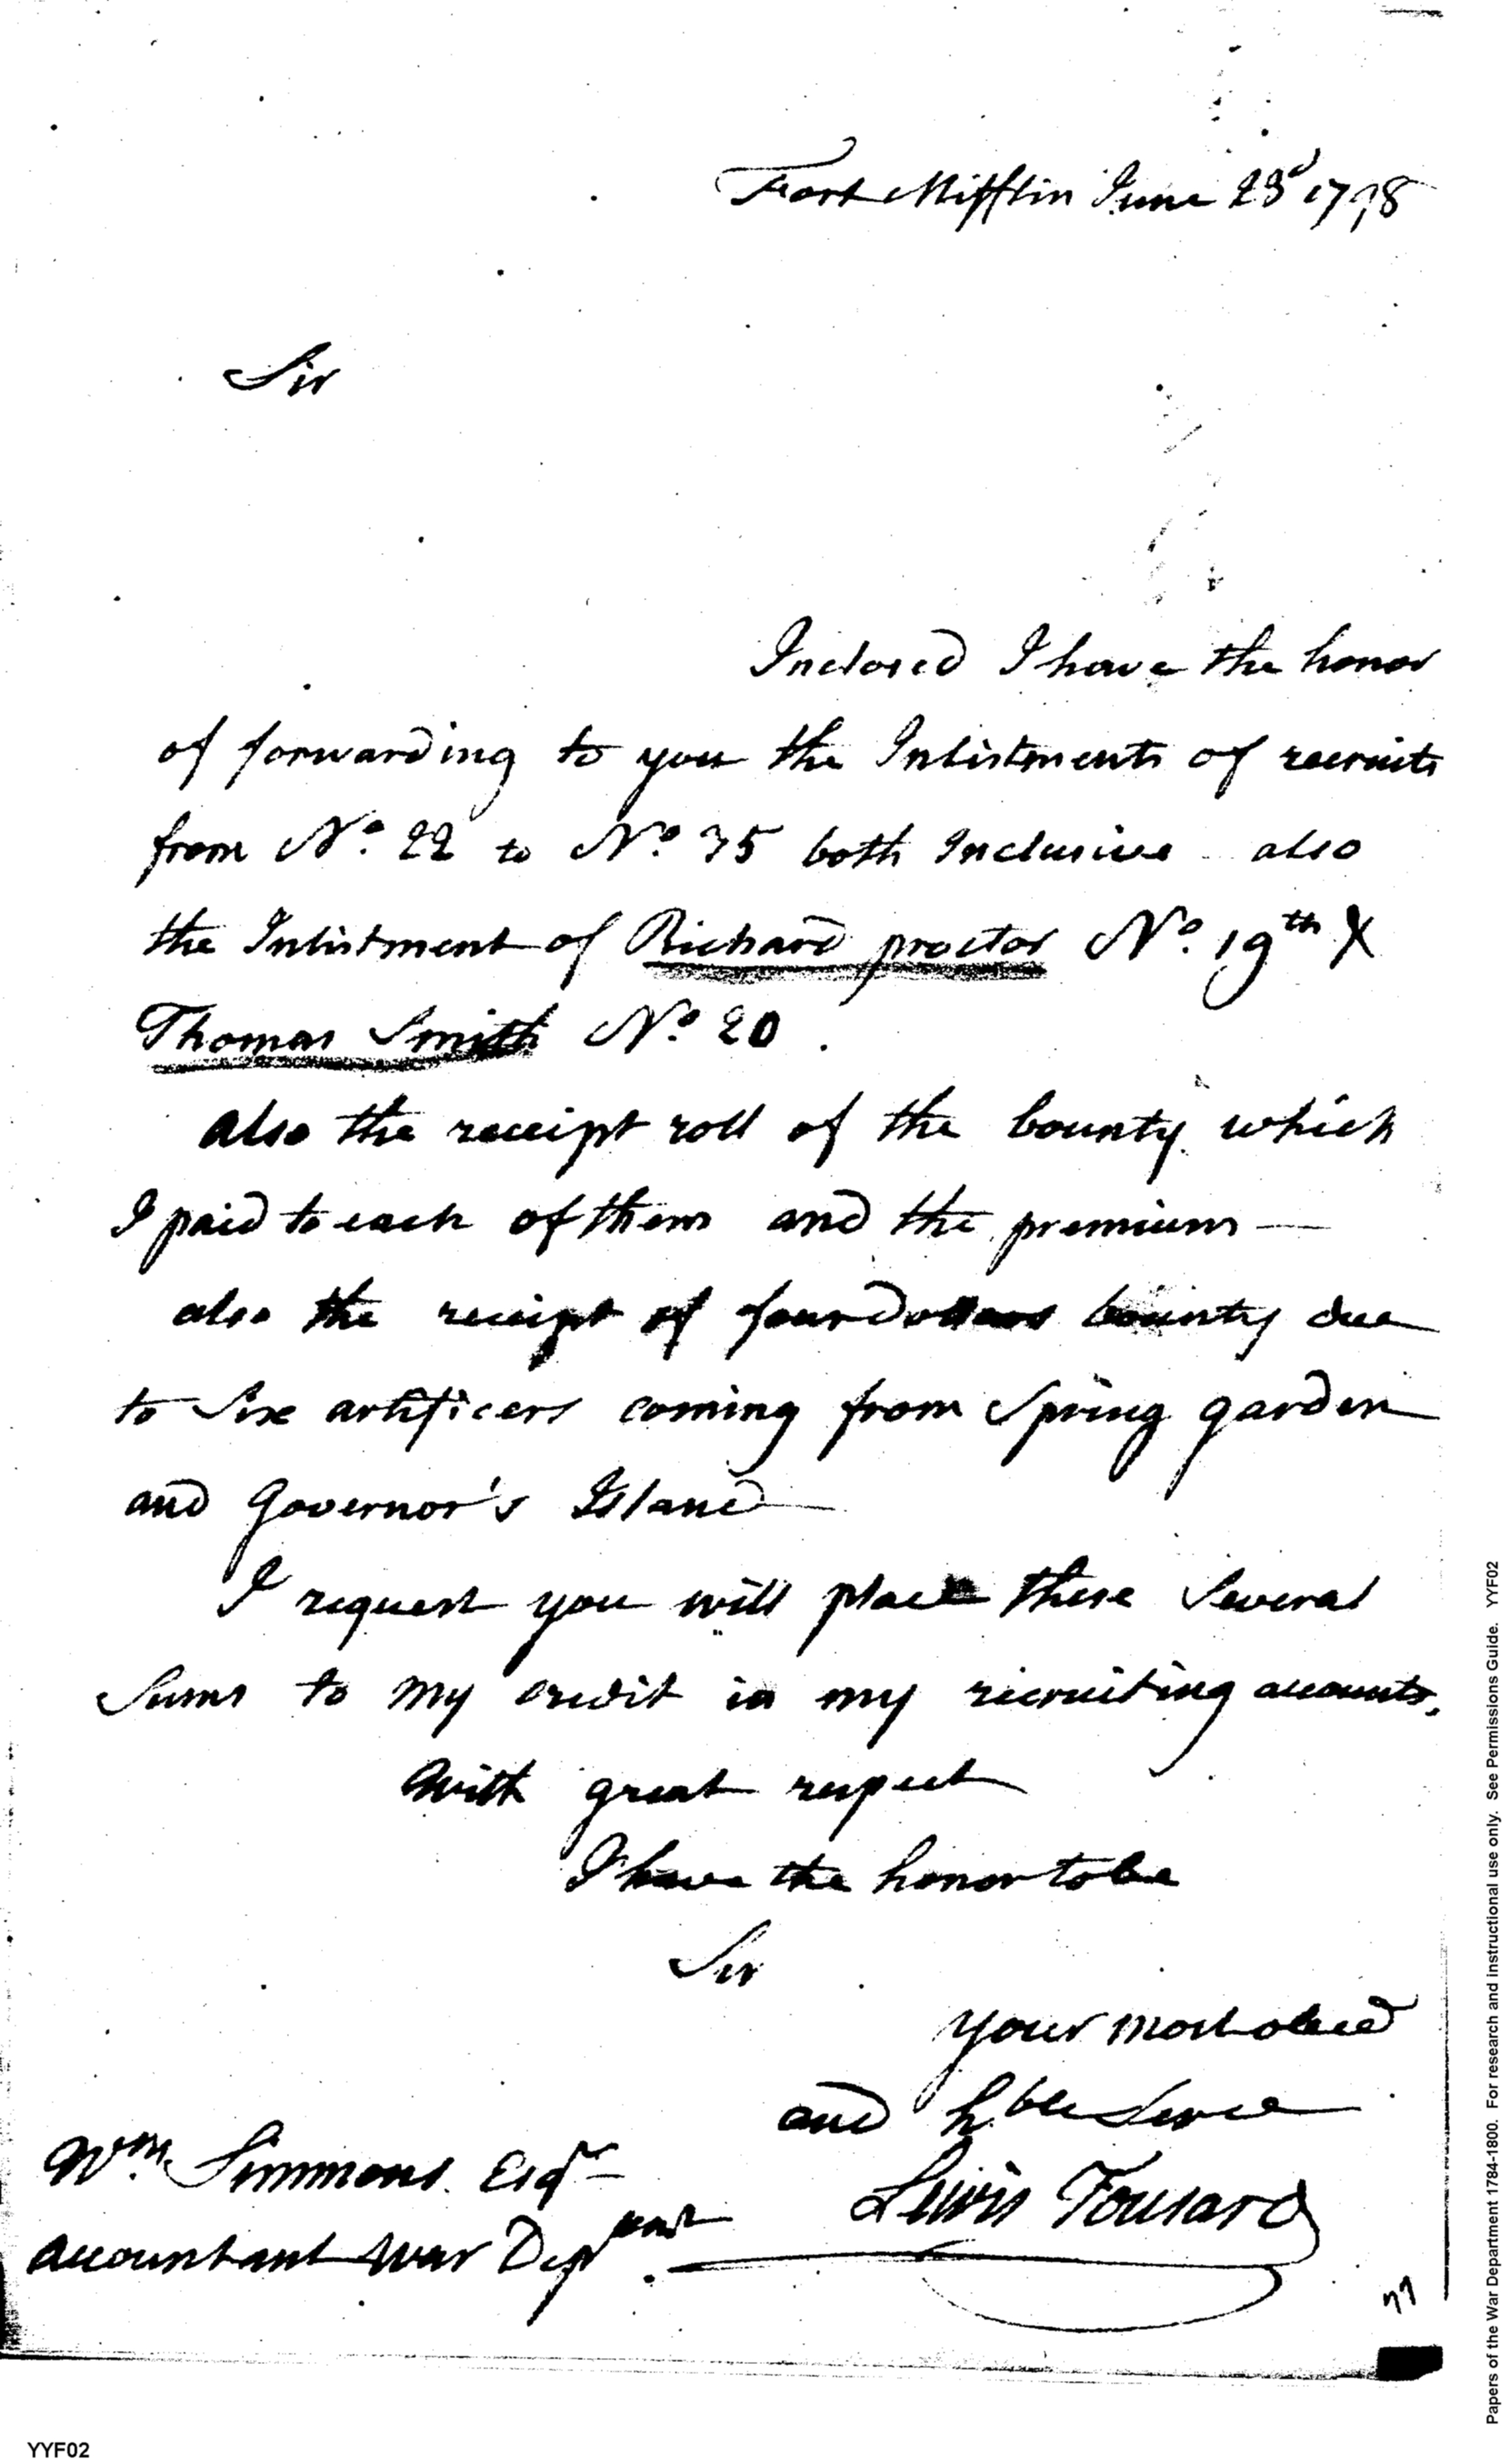 Fort Mifflin June 23d 1798
Sir
Inclosed I have the honor
of forwarding to you the Inlistments of recruits
from No. 22 to No. 35 both Inclusive also
the Inlistment of Richard proctor No. 19th X
Thomas Smith No. 20.
also the receipt roll of the bounty which
I paid to each of them and the premium —
also the receipt of four Dollars bounty due
to Six artificers coming from Spring garden
and Governor's Island —
I request you will place these Several
Sums to my credit in my recruiting accounts.
With great respect
I have the honor to be
Sir
your most obed
and hble Serve
Lewis Tousard
Wm. Simmons Esqr
accountant War Depment.
77
YYF02
Papers of the War Department 1784-1800. For research and instructional use only. See Permissions Guide. YYF02